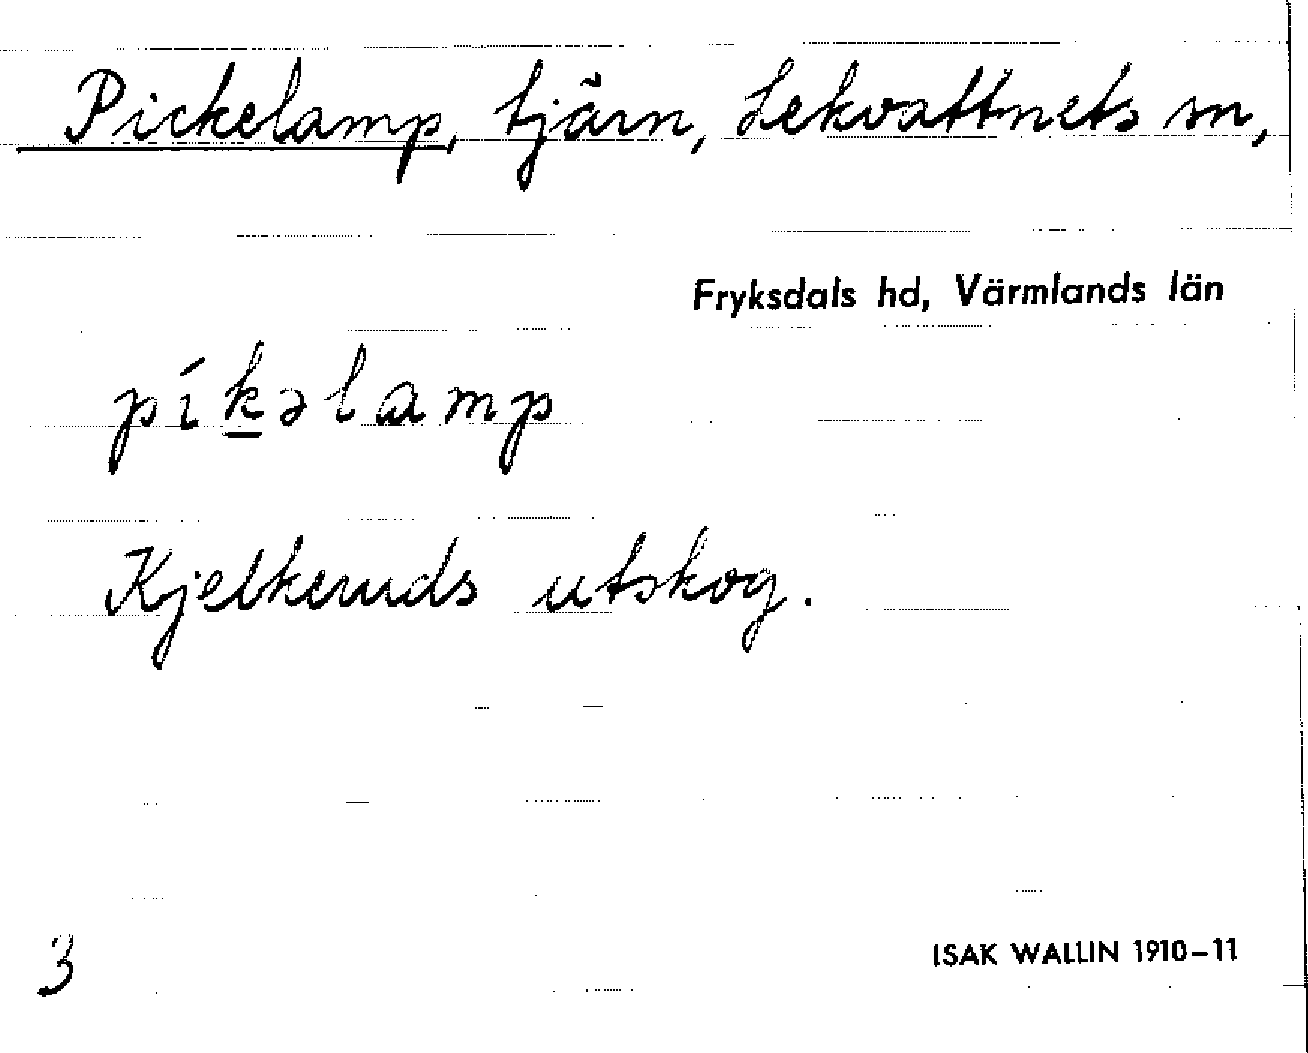 Pickelamp, tjärn, Lekvattnets sn,
Fryksdals hd, Värmlands län
píkəlamp
Kjelkeruds utskog.
3
ISAK WALLIN 1910-11